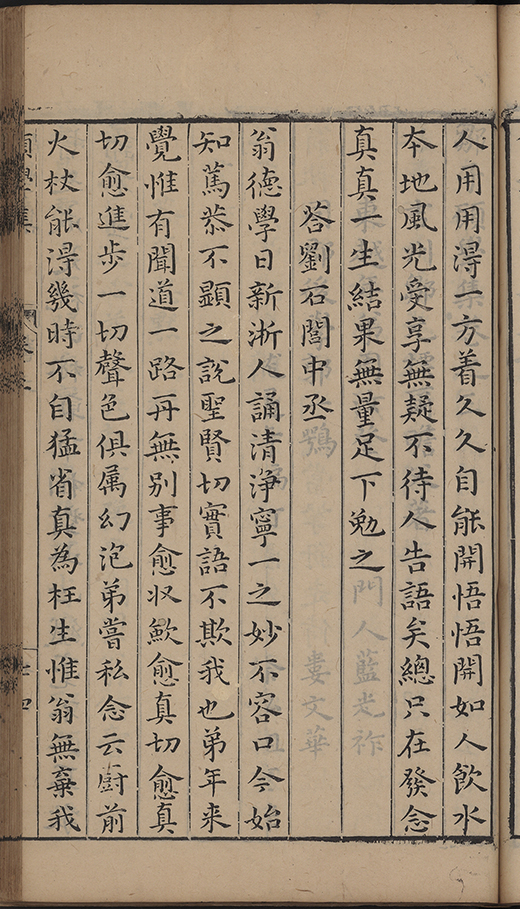 人用用淂一方着久久自能開悟悟開如人飲水
本地風光受享無疑不待人告語矣緫只在發念
真真一生結果無量足下勉之
荅劉石閭中丞
翁德學日新浙人誦清淨寧一之妙不容口今始
知篤恭不顯之説聖賢切實語不欺我也弟年来
覺惟有聞道一路再無别事愈収歛愈真切愈真
切愈進步一切聲色俱属幻泡弟嘗私念云厨前
火杖能淂幾時不自猛省真為枉生惟翁無棄我